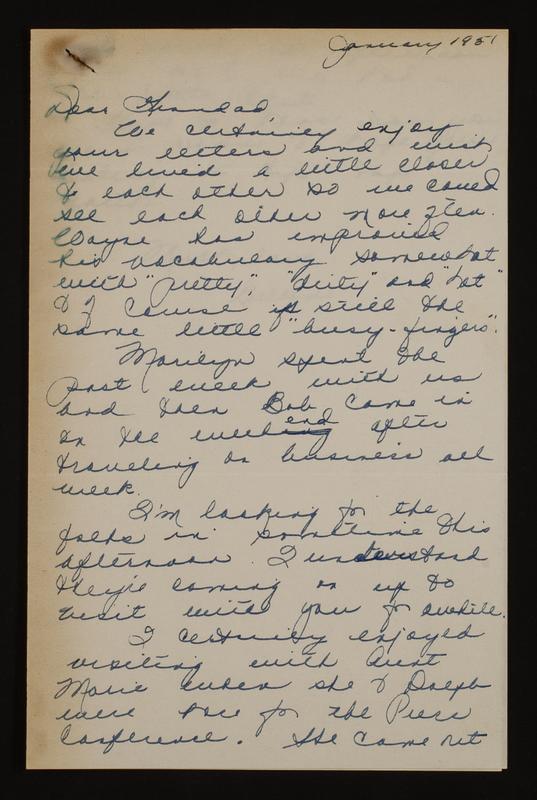 January 1951
Dear Grandad
We certainly enjoy
your letters and wish
we lived a little closer
to each other so we could
see each other more often.
Wayne has improved
his vocabulary somewhat
with "pretty", "dirty" and "hot"
& of course is still the
same little "busy-fingers".
Marilyn spent the
past week with us
and then Bob came in
on the weekend after
traveling on business all
week.
I'm looking for the
folks in sometime this
afternoon. I understand
they're coming on up to
visit with you for awhile.
I certainly enjoyed
visiting with Aunt
Marie when she & Dolph
were here for the
Conference. She came out